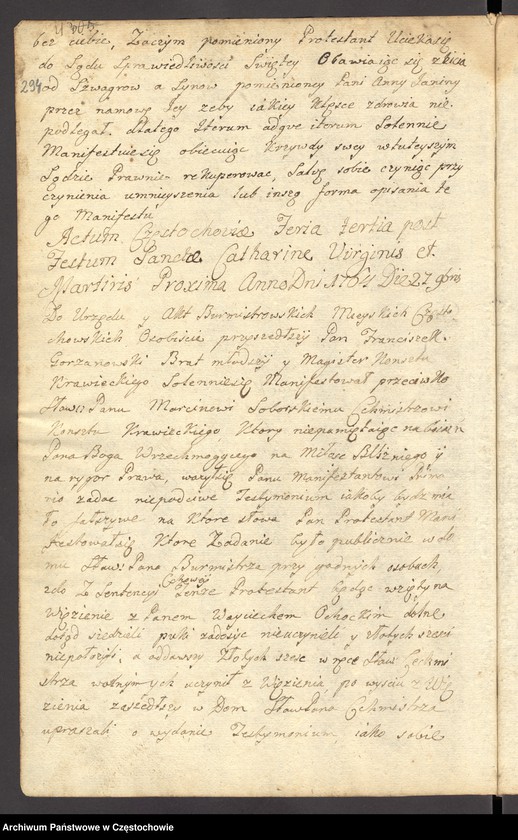 bez ciebie, Zaczym pomieniony Protestant Uciekaiąc
do Sądu Sprawiedliwości Swiętey Obawiaiąc się zbicia
294
od Szwagrow a Synow pomienioney Pani Anny Janiny
przez namowę Jey zeby iakiey klęsce zdrowia nie
podlegał. dlatego Iterum adque iterum Solennie
Manifestuie się obiecuiąc Krzywdy swey w tuteyszym
Sądzie Prawnie rekuperować, Salvę sobie czyniąc przy
czynienia umnieyszenia lub inszą forma opisania te
go Manifestu
Actum Częstochoviæ Feria tertia post
Festum Sanctæ Catharinæ Virginis et
Martiris Proxima Anno Dni 1764 Die 27 9bris
Do Urzędu y Akt Burmistrowskich Mieyskich Często
chowskich Osobiscie przyszedłszy Pan Franciszek
Gorzanowski Brat młodszy y Magister Konsztu
Krawieckiego Solennie się Manifestował przeciwko
Sław: Panu Marcinowi Soborskiemu Cechmistrzowi
Konsztu Krawieckiego Ktory niepamiętaiąc na boiazn
Pana Boga Wszechmogącego na Miłosc Blizniego y
na rygor Prawa, wazył się Panu Manifestantowi
zadac niepodciwe Testymonium iakoby bydz mia
ło fałszywe na Ktore słowa Pan Protestant Mani
festował się Ktore Zadanie było publicznie w do
mu Sław: Pana Burmistrza przy godnych osobach,
zdo Z Sentencyi Cechowey Tenze Protestant będąc wzięty na
Więzienie z Panem Woyciechem Ochockim
dotąd siedzieli puki zadosyc nieuczynieli y złotych szesci
niepołozyli, a oddawszy Złotych szesc w ręce Sław: Cechmi
strza wolnym ych uczynił z Więzienia po wysciu z Wię
zienia zaszedłszy w Dom Sław Pana Cechmistrza
upraszali o wydanie Testymonium, iako sobie
Archiwum Państwowe w Częstochowie